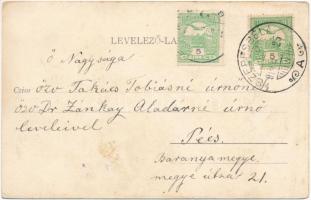 LEVELEZŐ-LA
Ő Nagysága
özv Takács Tobiásné úrnőnek
özv Dr Zánkay Aladárné úrnő
leveleivel
Pécs.
Baranyamegye.
megye útza 21.
5
5